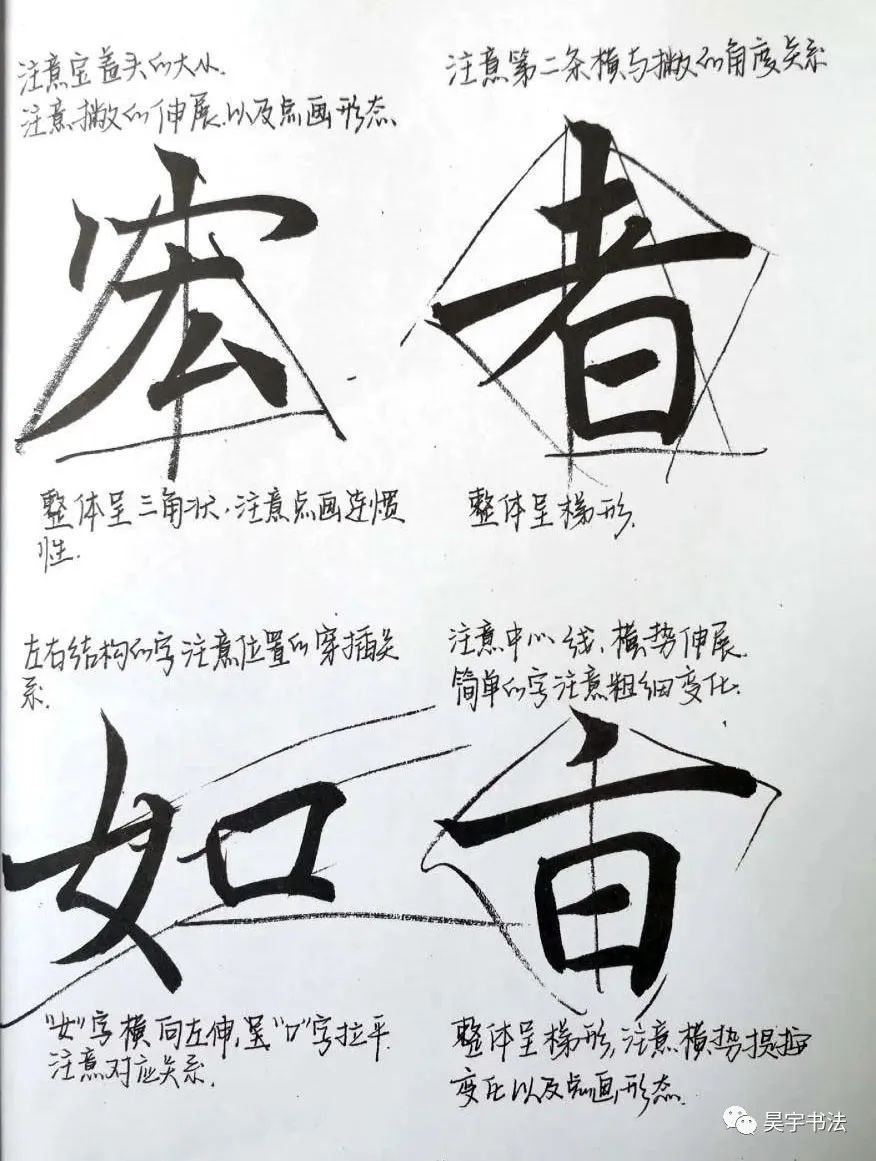 注意宝盖头的大小.
注意撇的伸展.以及点画形态、
宏
整体呈三角状,注意点画连惯
性.
注意第二条横与撇的角度关系
者
整体呈梯形.
左右结构的字注意位置的穿插关
系.
如
"女"字横向左伸,呈"口"字拉平.
注意对应关系.
注意中心线、横势伸展.
简单的字注意粗细变化.
整体呈梯形,注意横势提按
变化以及点画形态.
昊宇书法